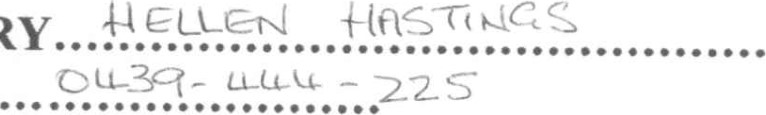 RY HELLEN HASTINGS
0439-444-225